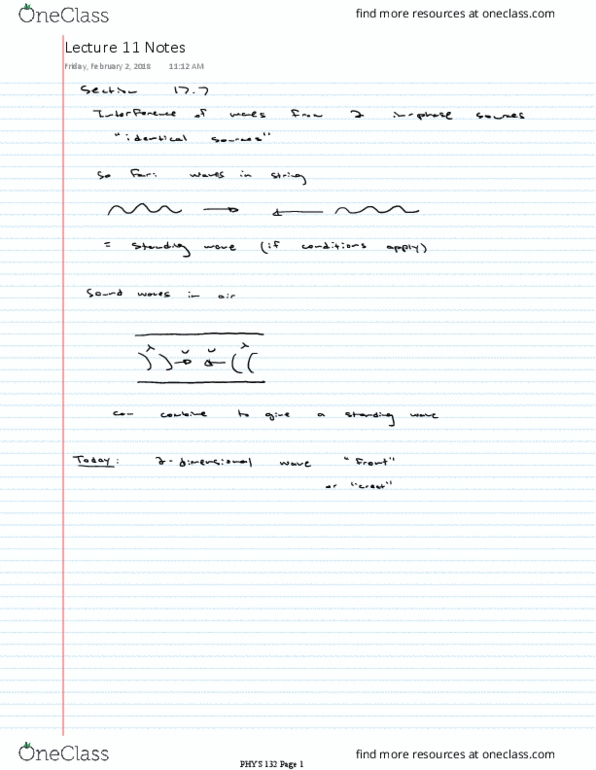 OneClass find more resources at oneclass.com
Lecture 11 Notes
Friday, February 2, 2018 11:12 AM
Section 17.7
Interference of waves from 2 in-phase sources
"identical sources"
So far: waves in string
= standing wave (if conditions apply)
Sound waves in air
λ v v λ
can combine to give a standing wave
Today: 2-dimensional wave "front"
or "crest"
OneClass find more resources at oneclass.com
PHYS 132 Page 1